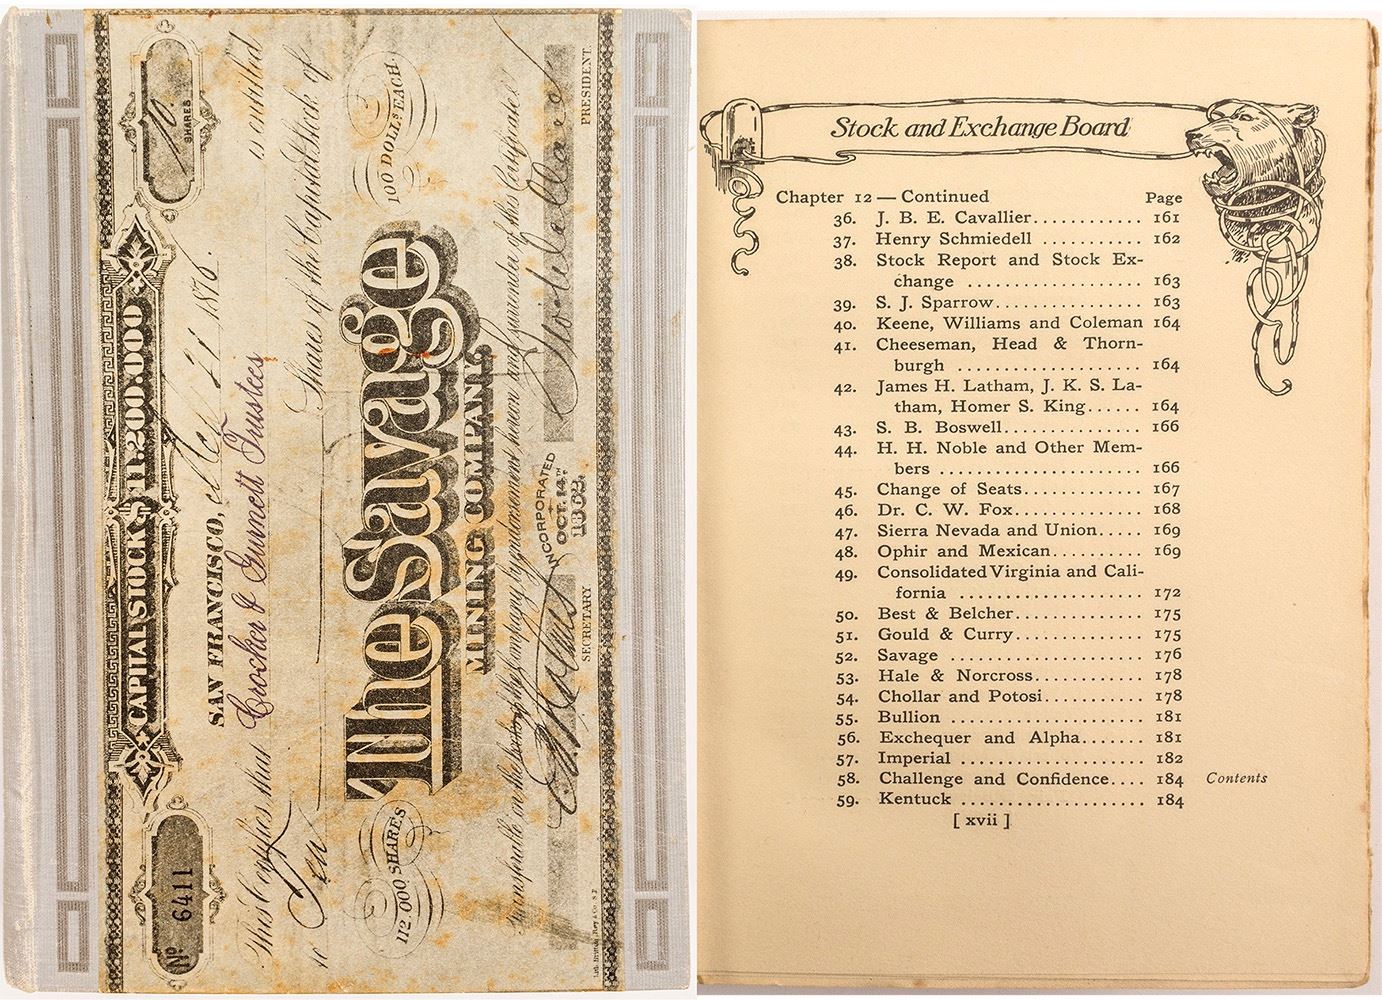 No 6411
CAPITAL STOCK $11.200.000
10.
SHARES
SAN FRANCISCO, 21 1876.
This Certifies that Crocker & Gwinett Trustees is entitled
to Ten Shares of the Capital Stock of
112.000 SHARES
The Savage
MINING COMPANY.
100 DOLLS EACH.
Transferable on the books of the Company by endorsement hereon and surrender of this Certificate.
INCORPORATED
OCT. 14TH
1862.
SECRETARY
PRESIDENT.
Lith. Britton, Rey & Co. S.F.
Stock and Exchange Board
Chapter 12 — Continued Page
36. J. B. E. Cavallier............ 161
37. Henry Schmiedell ........... 162
38. Stock Report and Stock Ex-
change .................. 163
39. S. J. Sparrow................ 163
40. Keene, Williams and Coleman 164
41. Cheeseman, Head & Thorn-
burgh ................... 164
42. James H. Latham, J. K. S. La-
tham, Homer S. King...... 164
43. S. B. Boswell............... 166
44. H. H. Noble and Other Mem-
bers ..................... 166
45. Change of Seats............. 167
46. Dr. C. W. Fox............... 168
47. Sierra Nevada and Union..... 169
48. Ophir and Mexican.......... 169
49. Consolidated Virginia and Cali-
fornia ................... 172
50. Best & Belcher.............. 175
51. Gould & Curry.............. 175
52. Savage .................... 176
53. Hale & Norcross............ 178
54. Chollar and Potosi........... 178
55. Bullion .................... 181
56. Exchequer and Alpha....... 181
57. Imperial ................... 182
58. Challenge and Confidence.... 184 Contents
59. Kentuck ................... 184
[ xvii ]